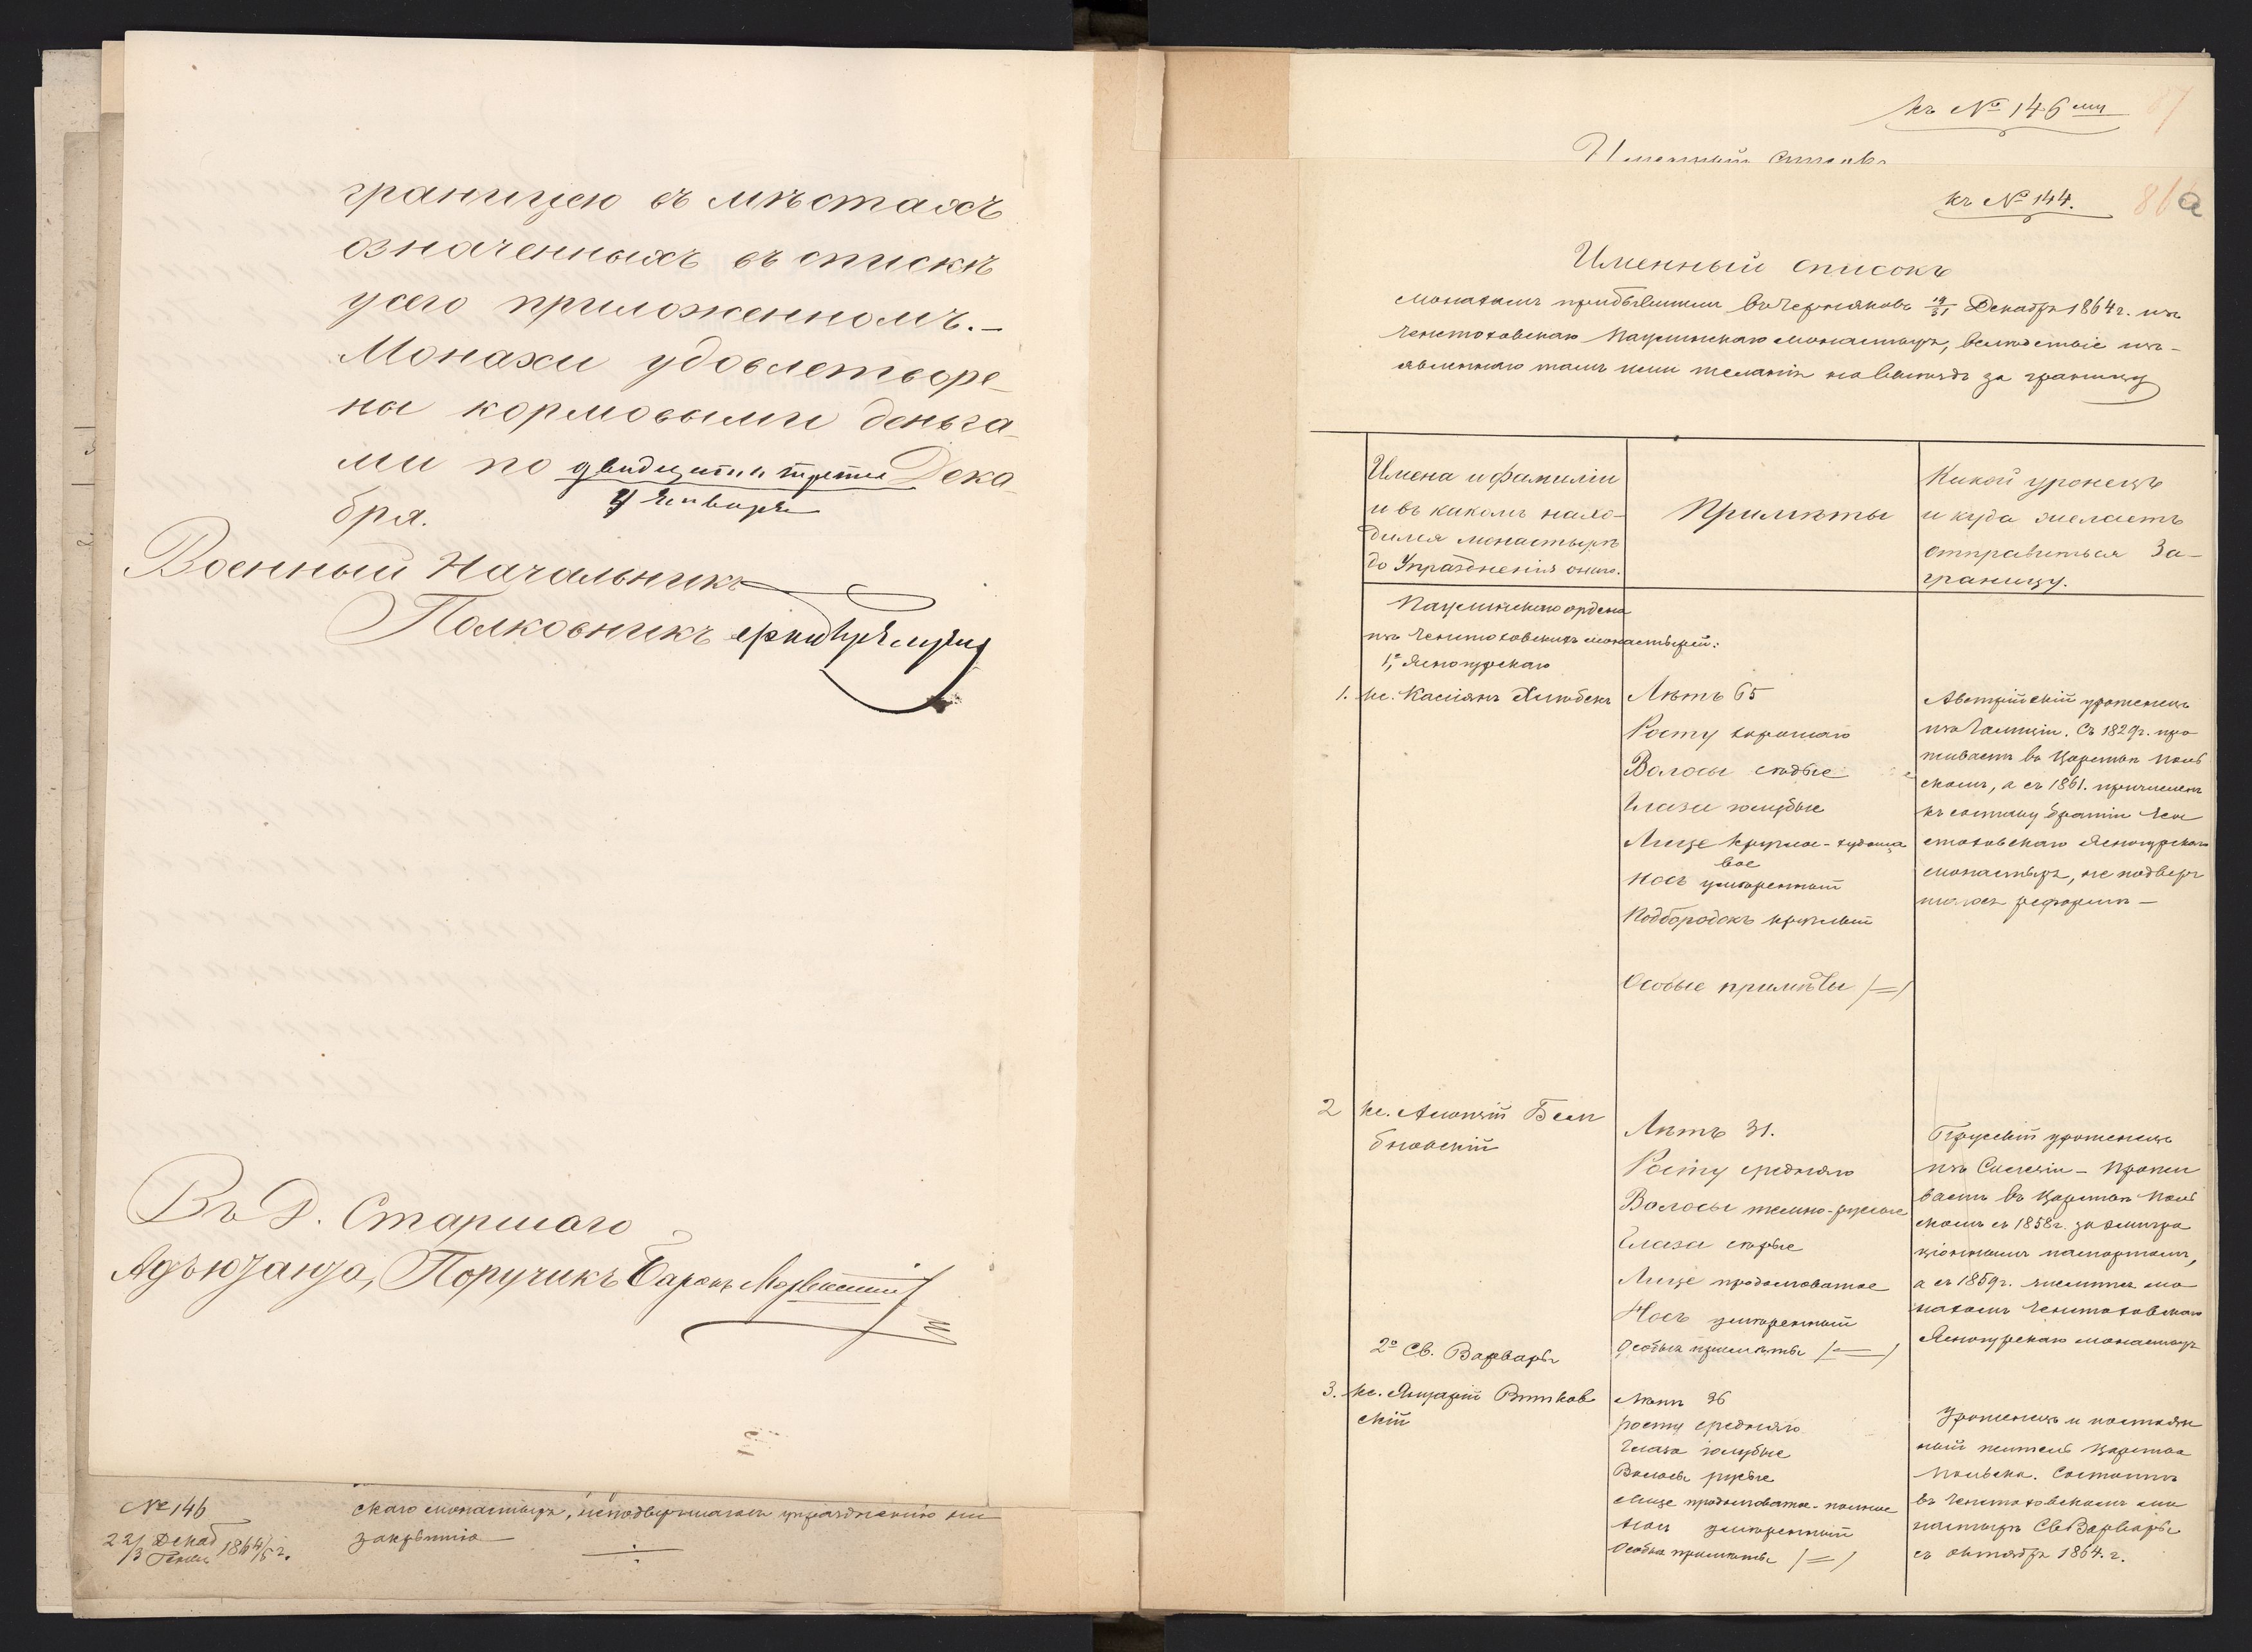 границею въ мѣстахъ
означенныхъ въ спискѣ
у сего приложенномъ.-
Монахи удовлетворе-
ны кормовыми деньга-
ми по двадцать третье Дека-
4 Января
бря.
Военный Начальникъ
Полковникъ
Въ Д. Старшаго
Адъютанта, Поручикъ Баронъ
№ 146
22/3 Декаб/Генв 1864/5 г.
скаго монастыря, неподвергшагося упраздненію ни
закрытію
къ № 146 му
87
Именный списокъ
къ № 144.
86 a
Именный списокъ
монахамъ прибывшимъ въ Черняковъ 19/31 Декабря 1864 г. изъ
Ченстоховскаго Паулинскаго монастыря, вслѣдствіе изъ-
явленнаго тамъ ими желанія на выѣздъ за границу
Имена и фамиліи
и въ какомъ нахо-
дился монастырѣ
до Упраздненія онаго.
Примѣты
Какой уроженецъ
и куда желаетъ
отправиться За-
границу.
Паулинскаго ордена
изъ Ченстоховскихъ монастырей:
1º, Ясногурскаго
1. кс. Кассіянъ
Лѣтъ 65
Росту хорошаго
Волосы сѣдые
Глаза голубые
Лице круглое-худоща
вое
Носъ умѣренный
Подбородокъ круглый
Особые примѣты /=/
Австрійскій уроженецъ
изъ Галиціи. Съ 1829 г. про
живаетъ въ Царствѣ Поль
скомъ, а съ 1861. причисленъ
къ составу братіи Чен
стоховскаго Ясногурскаго
монастыря, не подверг
шагося реформѣ —
2 кс. Алоизій Бем
бновскій
Лѣтъ 31.
Росту средняго
Волосы темно-русые
Глаза сѣрые
Лице продолговатое
Носъ умѣренный
Особыя примѣты /=/
Прусскій уроженецъ
изъ Силезіи - Прожи
ваетъ въ Царствѣ Поль
скомъ съ 1858 г. за эмигра
ціоннымъ паспортомъ,
а съ 1859 г. числится мо
нахомъ Ченстоховскаго
Ясногурскаго монастыря
2º Св. Варвары
3. кс. Витков
скій
Лѣтъ 36
росту средняго
Глаза голубые
Волосы русые
Лице продолговатое-полное
Носъ умѣренный
Особыя примѣты /=/
Уроженецъ и постоян
ный житель Царства
Польска. Состоитъ
въ Ченстоховскомъ мо
настырѣ Св Варвары
съ октября 1864. г.